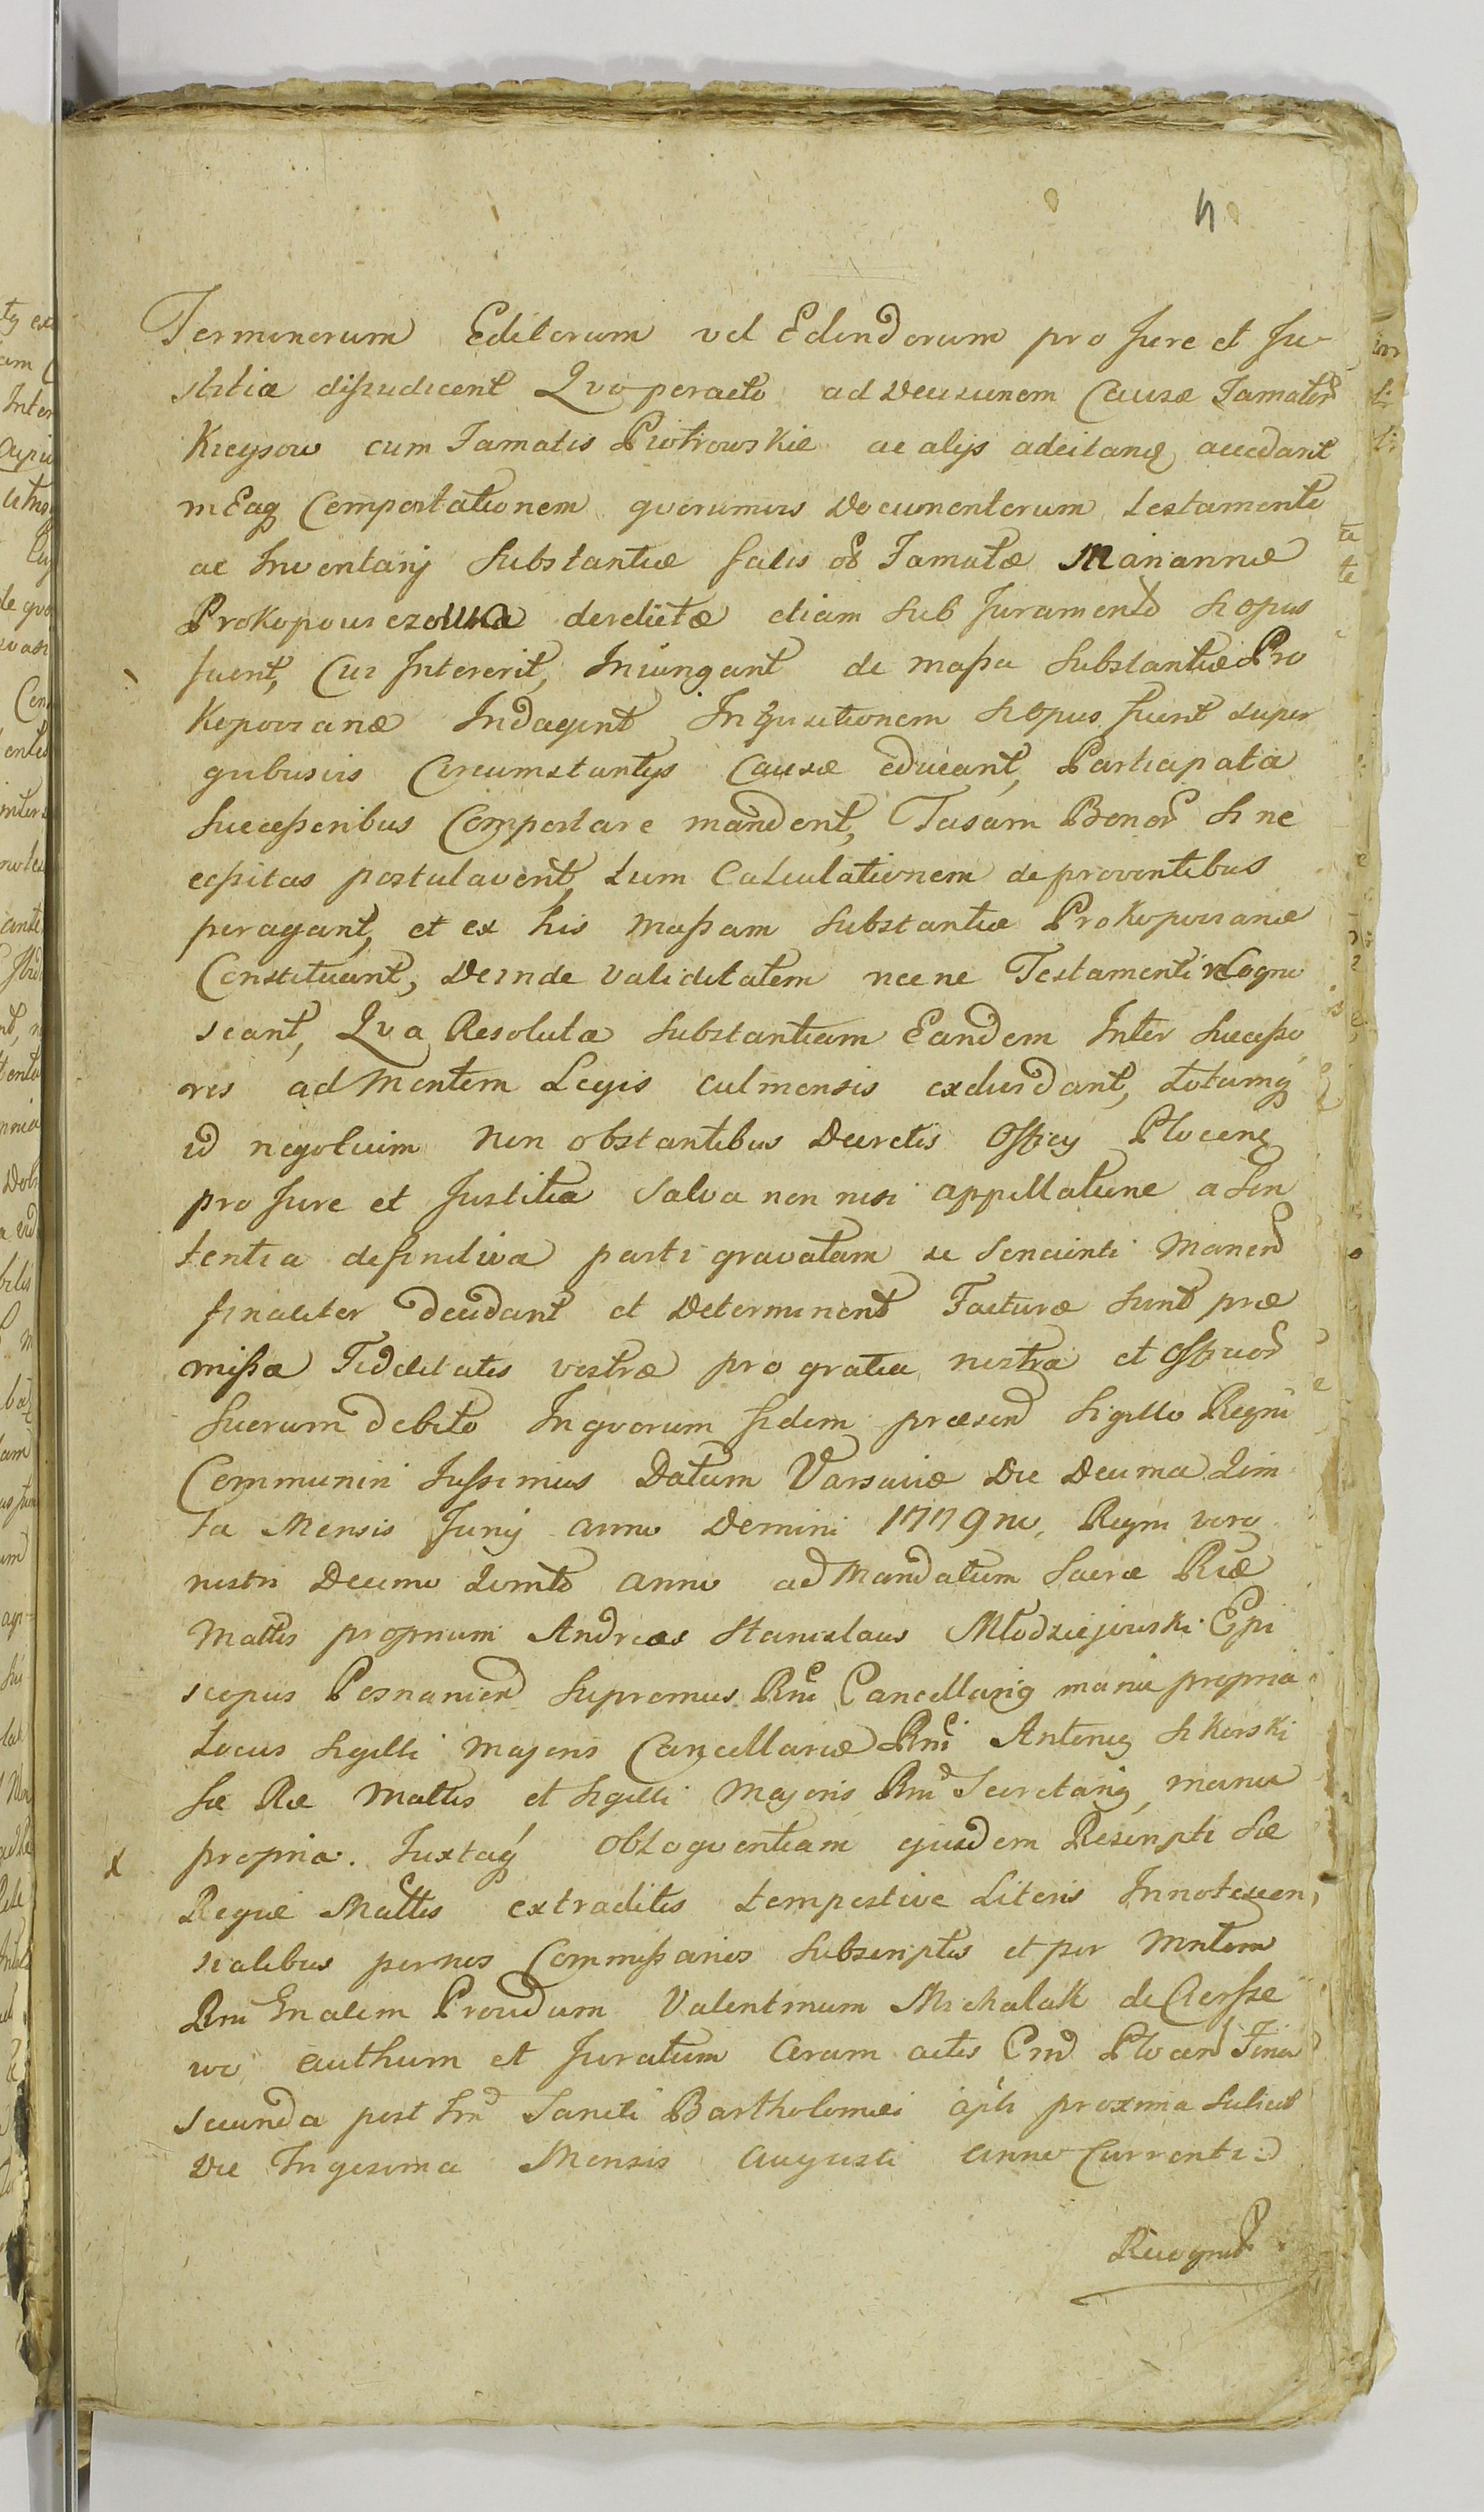 4
Terminorum Editorum vel Edendorum pro Jure et Ju-
stitia dijudicent Quo peracto ad Decisionem Causæ Famator
Kreysow cum Famatis Piotrowskie ac alijs adcitandis accedant
in Eaq Comportationem quorumvis Documentorum testamenti
ac Inventarij Substantiæ fatis os Famatæ Mariannæ
Prokopowiczowna derelictæ etiam Sub Juramento Si opus
fuerit, Cui Intererit, Iniungant de massa Substantiæ Pro
Kopovianæ Indagent Inquisitionem Si opus fuerit super
quibusvis Circumstantijs Causæ educant, Participata
Successoribus Comportare mandent, Taxam Bonor Si ne
cessitas postulaverit, tum Calculationem de proventibus
peragant, et ex his massam Substantiæ Prokopovianæ
Constituant, Deinde validitatem nec ne Testamenti reCogno
scant, Qua Resoluta Substantiam Eandem Inter Successo
res ad Mentem Legis Culmensis exdividant, totumq
id negotium non obstantibus Decretis Officij Plocen
pro Jure et Justitia Salva non nisi appellatione a Sen
tentia definitiva parti gravatam se Sencienti Manen
finaliter decidant et Determinent Facturæ Sunt præ
missa Fidelitates vestræ pro gratia nostra et Officior
Suorum debito In quorum fidem præsen Sigillo Regni
Communiri Jussimus Datum Varsaviæ Die Decima Quin
ta Mensis Junij anno Domini 1779no, Regni vero
nostri Decimo Quinto anno ad Mandatum Sacræ Riæ
Mattis proprium Andreas Stanislaus Młodziejowski Epi
scopus Posnanien Supremus Rni Cancellarig manu propria
Locus Sigilli Majoris Cancellariæ Rni Antonig Sikorski
Sæ Ræ Mattis et Sigilli Majoris Rni Secretarig manu
x propria. Juxtaq Obloquentiam ejusdem Rescripti Sæ
Regiæ Mattis extraditis tempestive Literis Innotescen,
cialibus per nos Commissarios Subscriptis et per Mntem
Rni Gnalem Providum Valentinum Michalak de
wo authum et Juratum Coram actis Cnd Plocen Feria
secunda post Fm Sancti Bartholomæi apli proxima Scilicet
Die Trigesima Mensis Augusti anno Currenti
Recognit